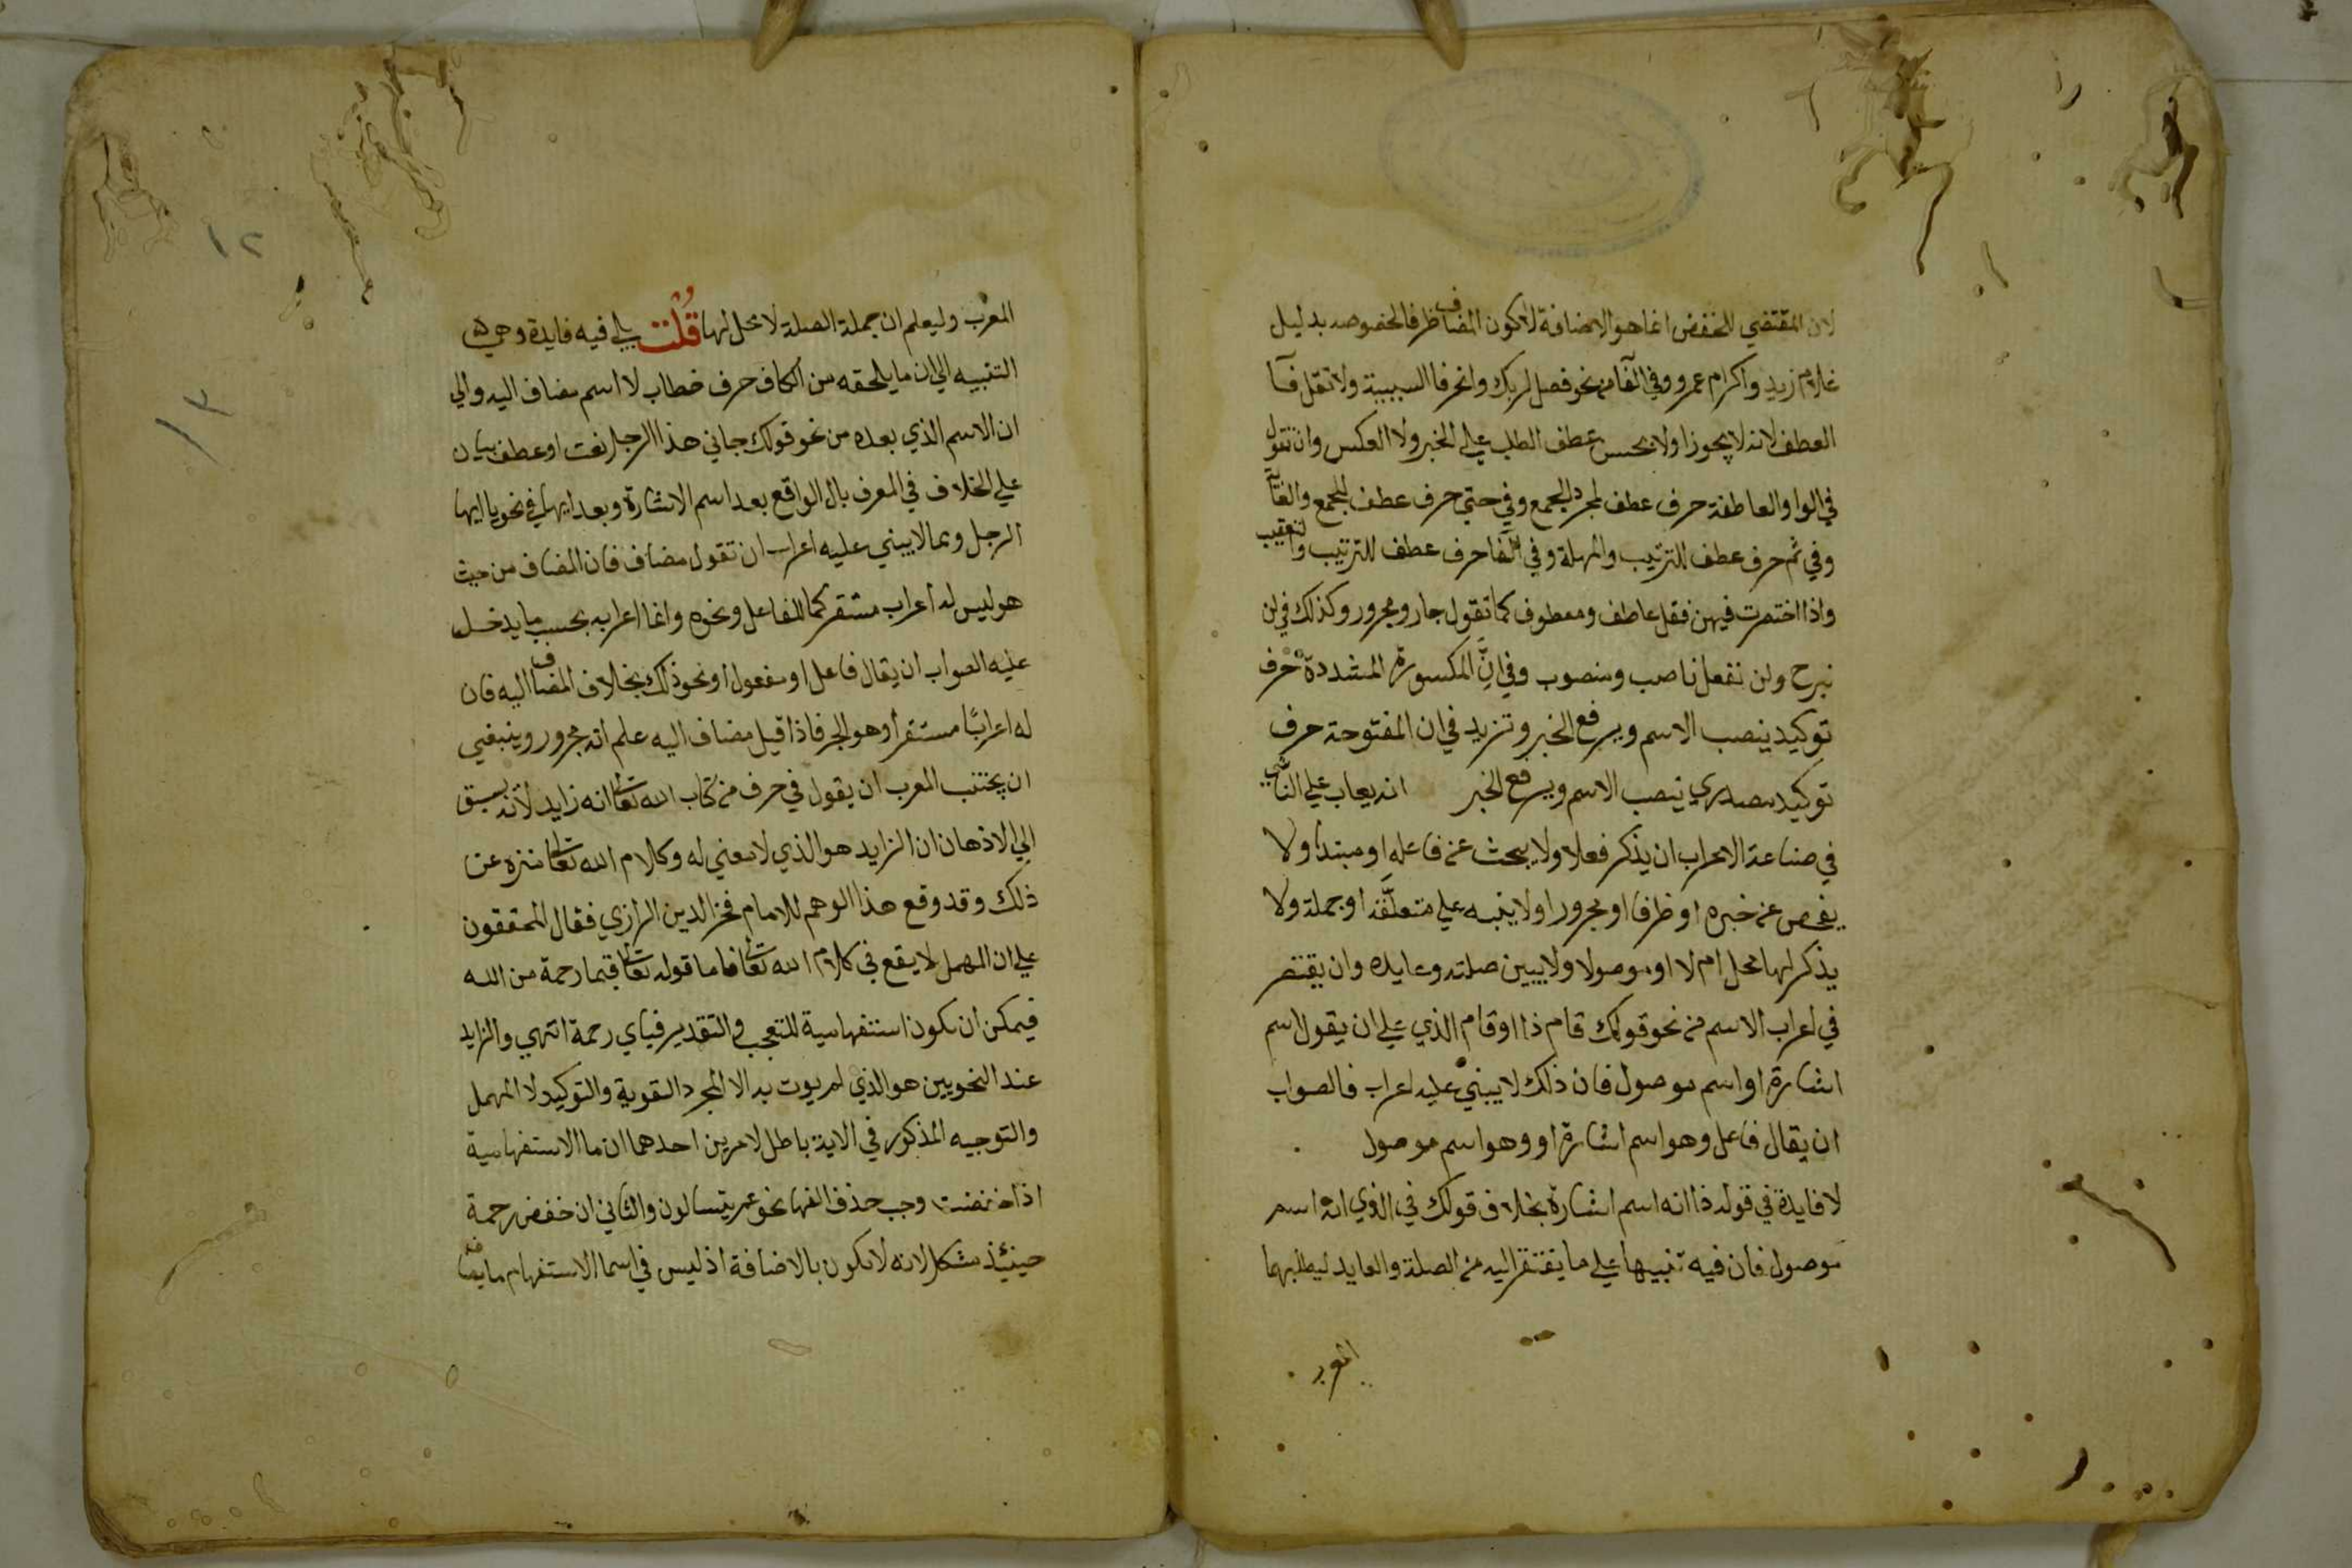 لان المقتضي للخفض انما هو الاضافة لا كون المضاف ظرفا لخصوصه بدليل
غلام زيد واكرام عمرو وفي الفا من نحو فصل لربك وانحر فا السببية ولا تقل فا
العطف لانه لا يجوز او لا يحسن عطف الطلب علي الخبر ولا العكس وان تقول
في الواو العاطفة حرف عطف لمجرد الجمع وفي حتي حرف عطف للجمع والغاية
وفي ثم حرف عطف للترتيب والمهلة وفي الفا حرف عطف للترتيب والتعقيب
واذا اختصرت فيهن فقل عاطف ومعطوف كما تقول جار ومجرور وكذلك في لن
نبرح ولن نفعل ناصب ومنصوب وفي انّ المكسورة المشددة حرف
توكيد ينصب الاسم ويرفع الخبر وتزيد في ان المفتوحة حرف
توكيد مصدري ينصب الاسم ويرفع الخبر انه يعاب علي الناشي
في صناعة الاعراب ان يذكر فعلا ولا يبحث عن فاعله او مبتدأ ولا
يفحص عن خبره او ظرفا او مجرورا ولا ينبه علي متعلقه او جملة ولا
يذكر لها محل ام لا او موصولا ولا يبين صلته وعايده وان يقتصر
في اعراب الاسم من نحو قولك قام ذا او قام الذي علي ان يقول اسم
اشارة او اسم موصول فان ذلك لا يبني عليه اعراب فالصواب
ان يقال فاعل وهو اسم اشارة او وهو اسم موصول
لا فايدة في قوله ذا انه اسم اشارة بخلاف قولك في الذي انه اسم
موصول فان فيه تنبيها علي ما يفتقر اليه من الصلة والعايد ليطلبهما
المعرب
١٢
١٣
المعرب وليعلم ان جملة الصلة لا محل لها قُلْتُ بلي فيه فايدة وهي
التنبيه الي ان ما يلحقه من الكاف حرف خطاب لا اسم مضاف اليه والي
ان الاسم الذي بعده من نحو قولك جاني هذا الرجل نعت او عطف بيان
علي الخلاف في المعرف بال الواقع بعد اسم الاشارة وبعد ايها في نحو يا ايها
الرجل ومما لا يبني عليه اعراب ان تقول مضاف فان المضاف من حيث
هو ليس له اعراب مستقر كما للفاعل ونحوه وانما اعرابه بحسب ما يدخل
عليه الصواب ان يقال فاعل او مفعول او نحو ذلك بخلاف المضاف اليه فان
له اعرابًا مستقرا وهو الجر فاذا قيل مضاف اليه علم انه مجرور وينبغي
ان يجتنب المعرب ان يقول في حرف من كتاب الله تعالى انه زايد لانه يسبق
الي الاذهان ان الزايد هو الذي لا معني له وكلام الله تعالى منزه عن
ذلك وقد وقع هذا الوهم للامام فخر الدين الرازي فقال المحققون
علي ان المهمل لا يقع في كلام الله تعالى فاما قوله تعالى فبما رحمة من الله
فيمكن ان تكون استفهامية للتعجب والتقدير فباي رحمة انتهي والزايد
عند النحويين هو الذي لم يوت به الا لمجرد التقوية والتوكيد لا المهمل
والتوجيه المذكور في الاية باطل لامرين احدهما ان ما الاستفهامية
اذا خفضت وجب حذف الفها نحو عم يتسالون والثاني ان خفض رحمة
حينئذ مشكل لانه لا تكون بالاضافة اذ ليس في اسما الاستفهام ما يضاف